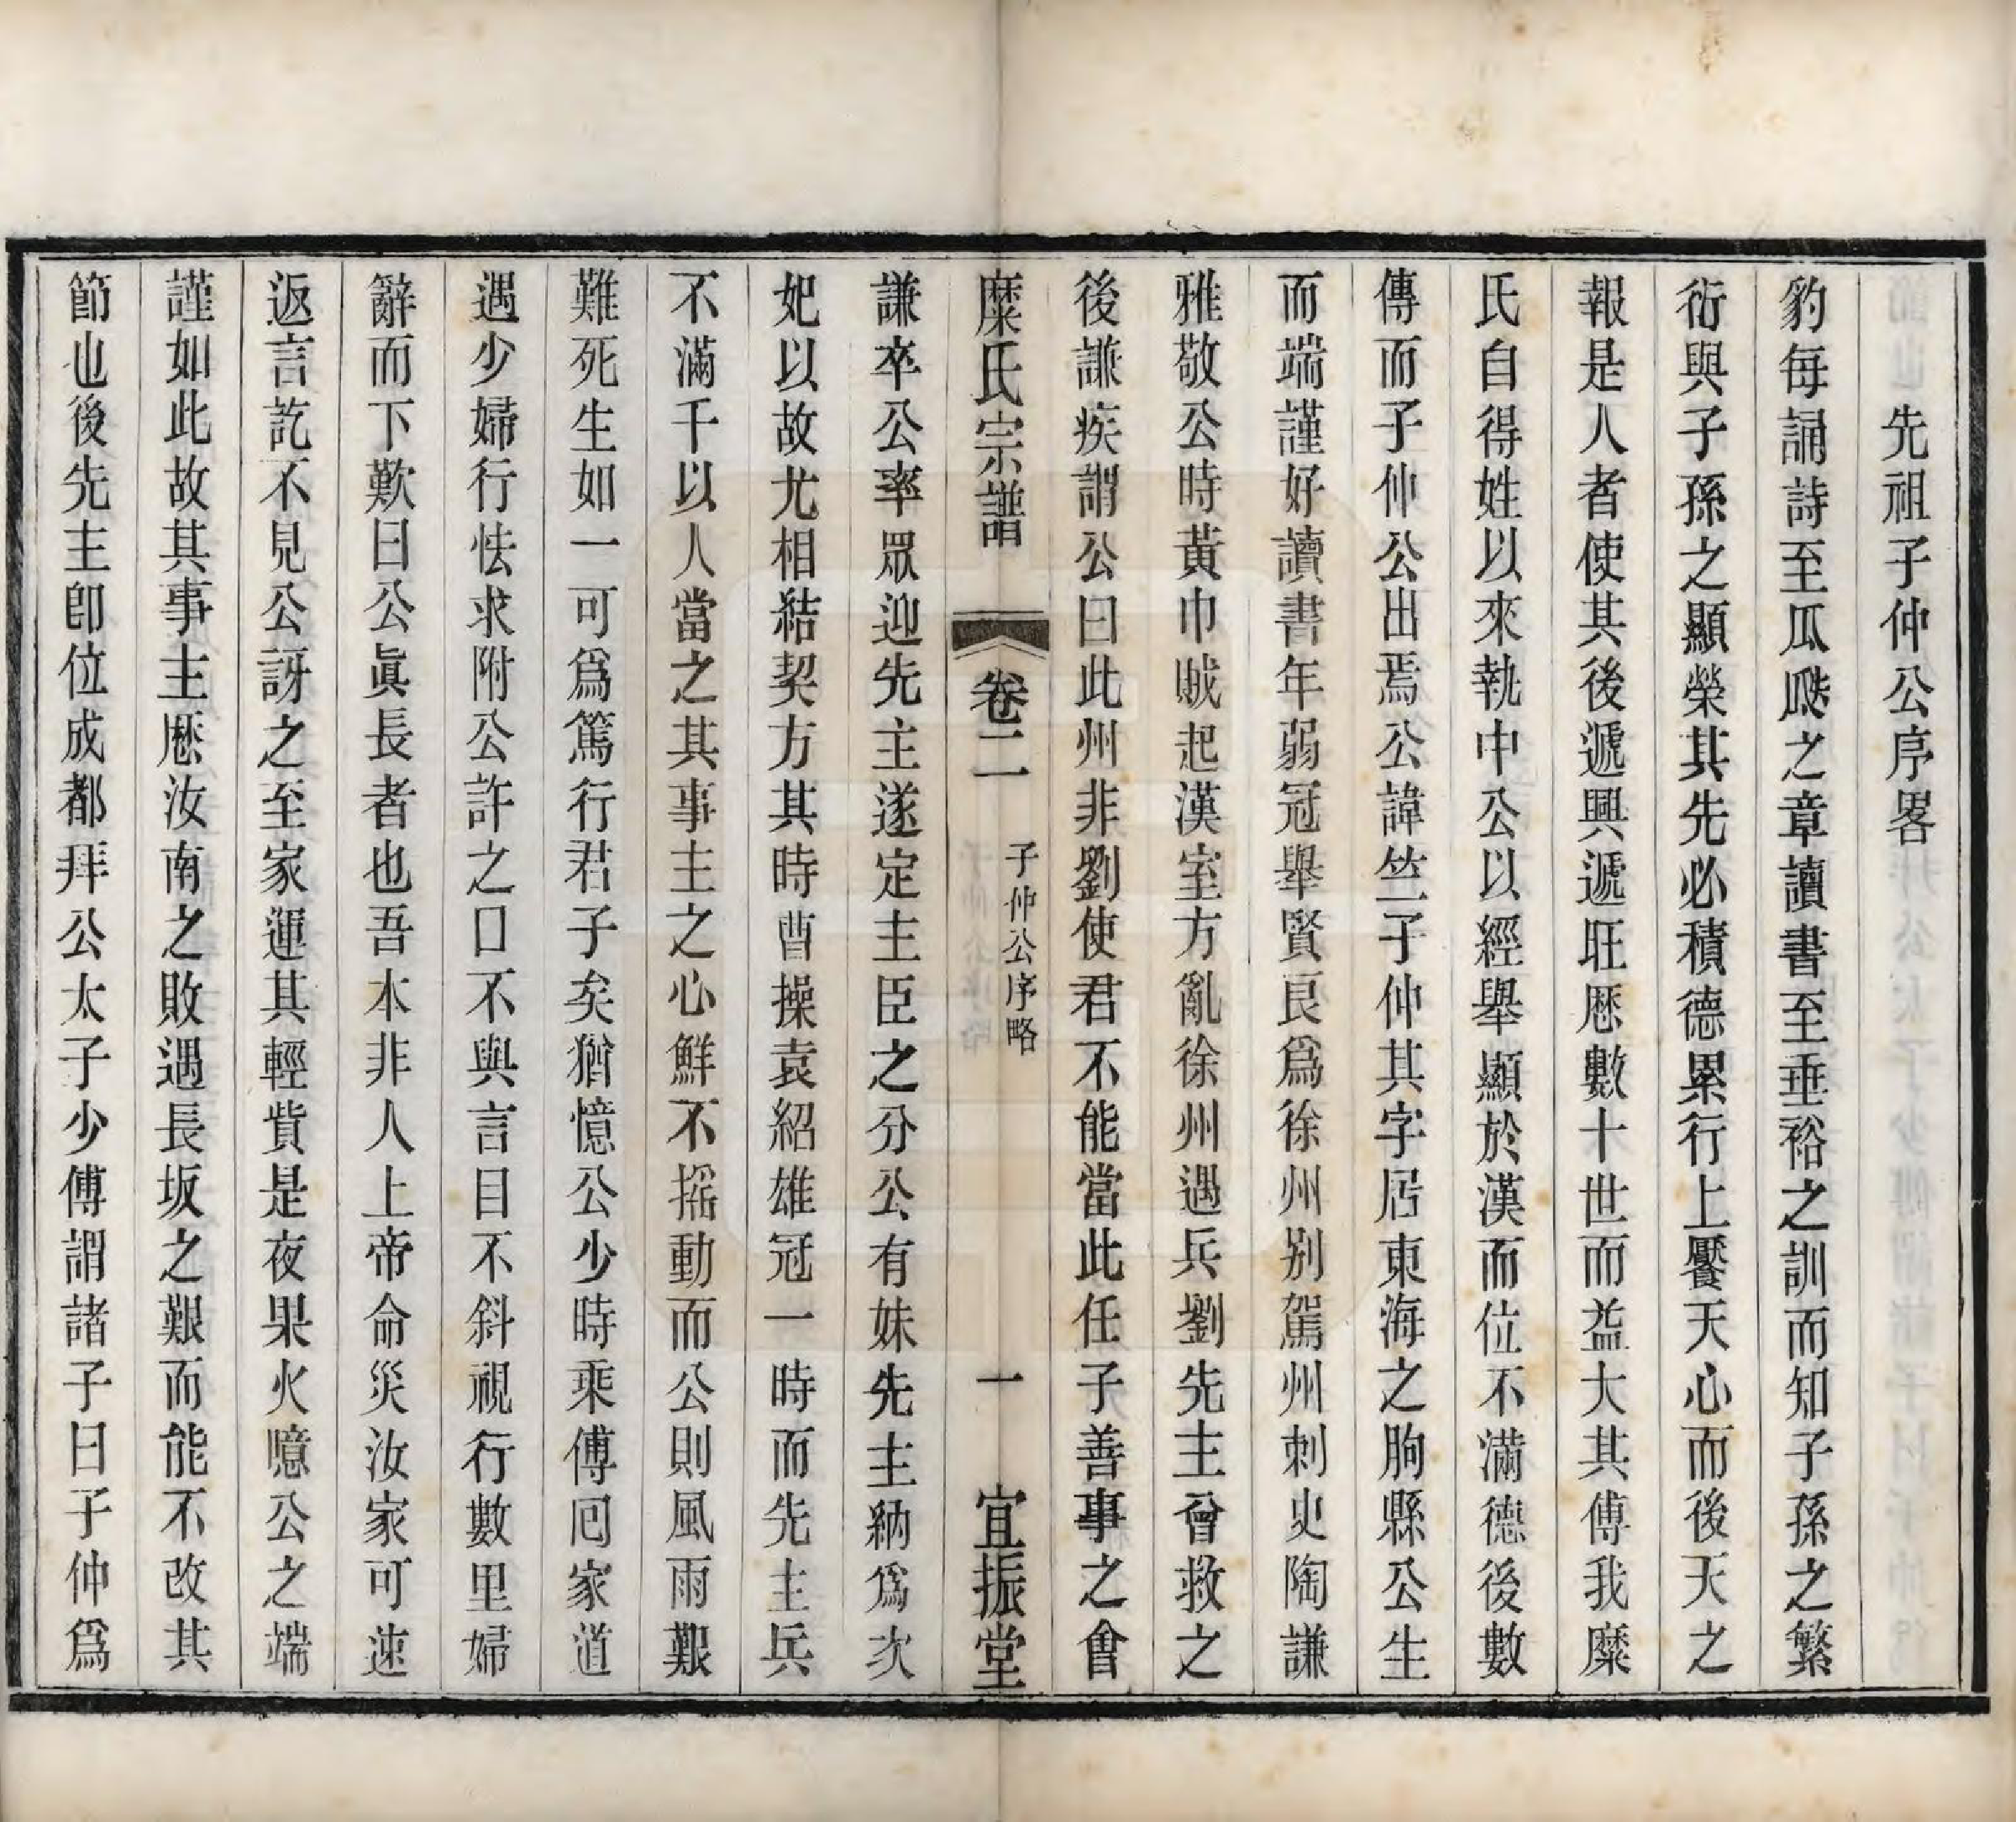 先祖子仲公序畧
豹每誦詩至瓜瓞之章讀書至垂裕之訓而知子孫之繁
衍與子孫之顯榮其先必積德累行上饜天心而後天之
報是人者使其後遞興遞旺厯數十世而益大其傳我糜
氏自得姓以來執中公以經舉顯於漢而位不滿德後數
傳而子仲公出焉公諱竺子仲其字居東海之朐縣公生
而端謹好讀書年弱冠舉賢良爲徐州别駕州刺史陶謙
雅敬公時黃巾賊起漢室方亂徐州遇兵劉先主曾救之
後謙疾謂公曰此州非劉使君不能當此任子善事之會
糜氏宗譜 卷二 子仲公序略 一 宜振堂
謙卒公率眾迎先主遂定主臣之分公有妹先主納爲次
妃以故尤相結契方其時曹操袁紹雄冠一時而先主兵
不滿千以人當之其事主之心鮮不摇動而公則風雨艱
難死生如一可爲篤行君子矣猶憶公少時乘傳囘家道
遇少婦行怯求附公許之口不與言目不斜視行數里婦
辭而下歎曰公眞長者也吾本非人上帝命災汝家可速
返言訖不見公訝之至家運其輕貲是夜果火噫公之端
謹如此故其事主厯汝南之敗遇長坂之艱而能不改其
節也後先主卽位成都拜公太子少傅謂諸子曰子仲爲